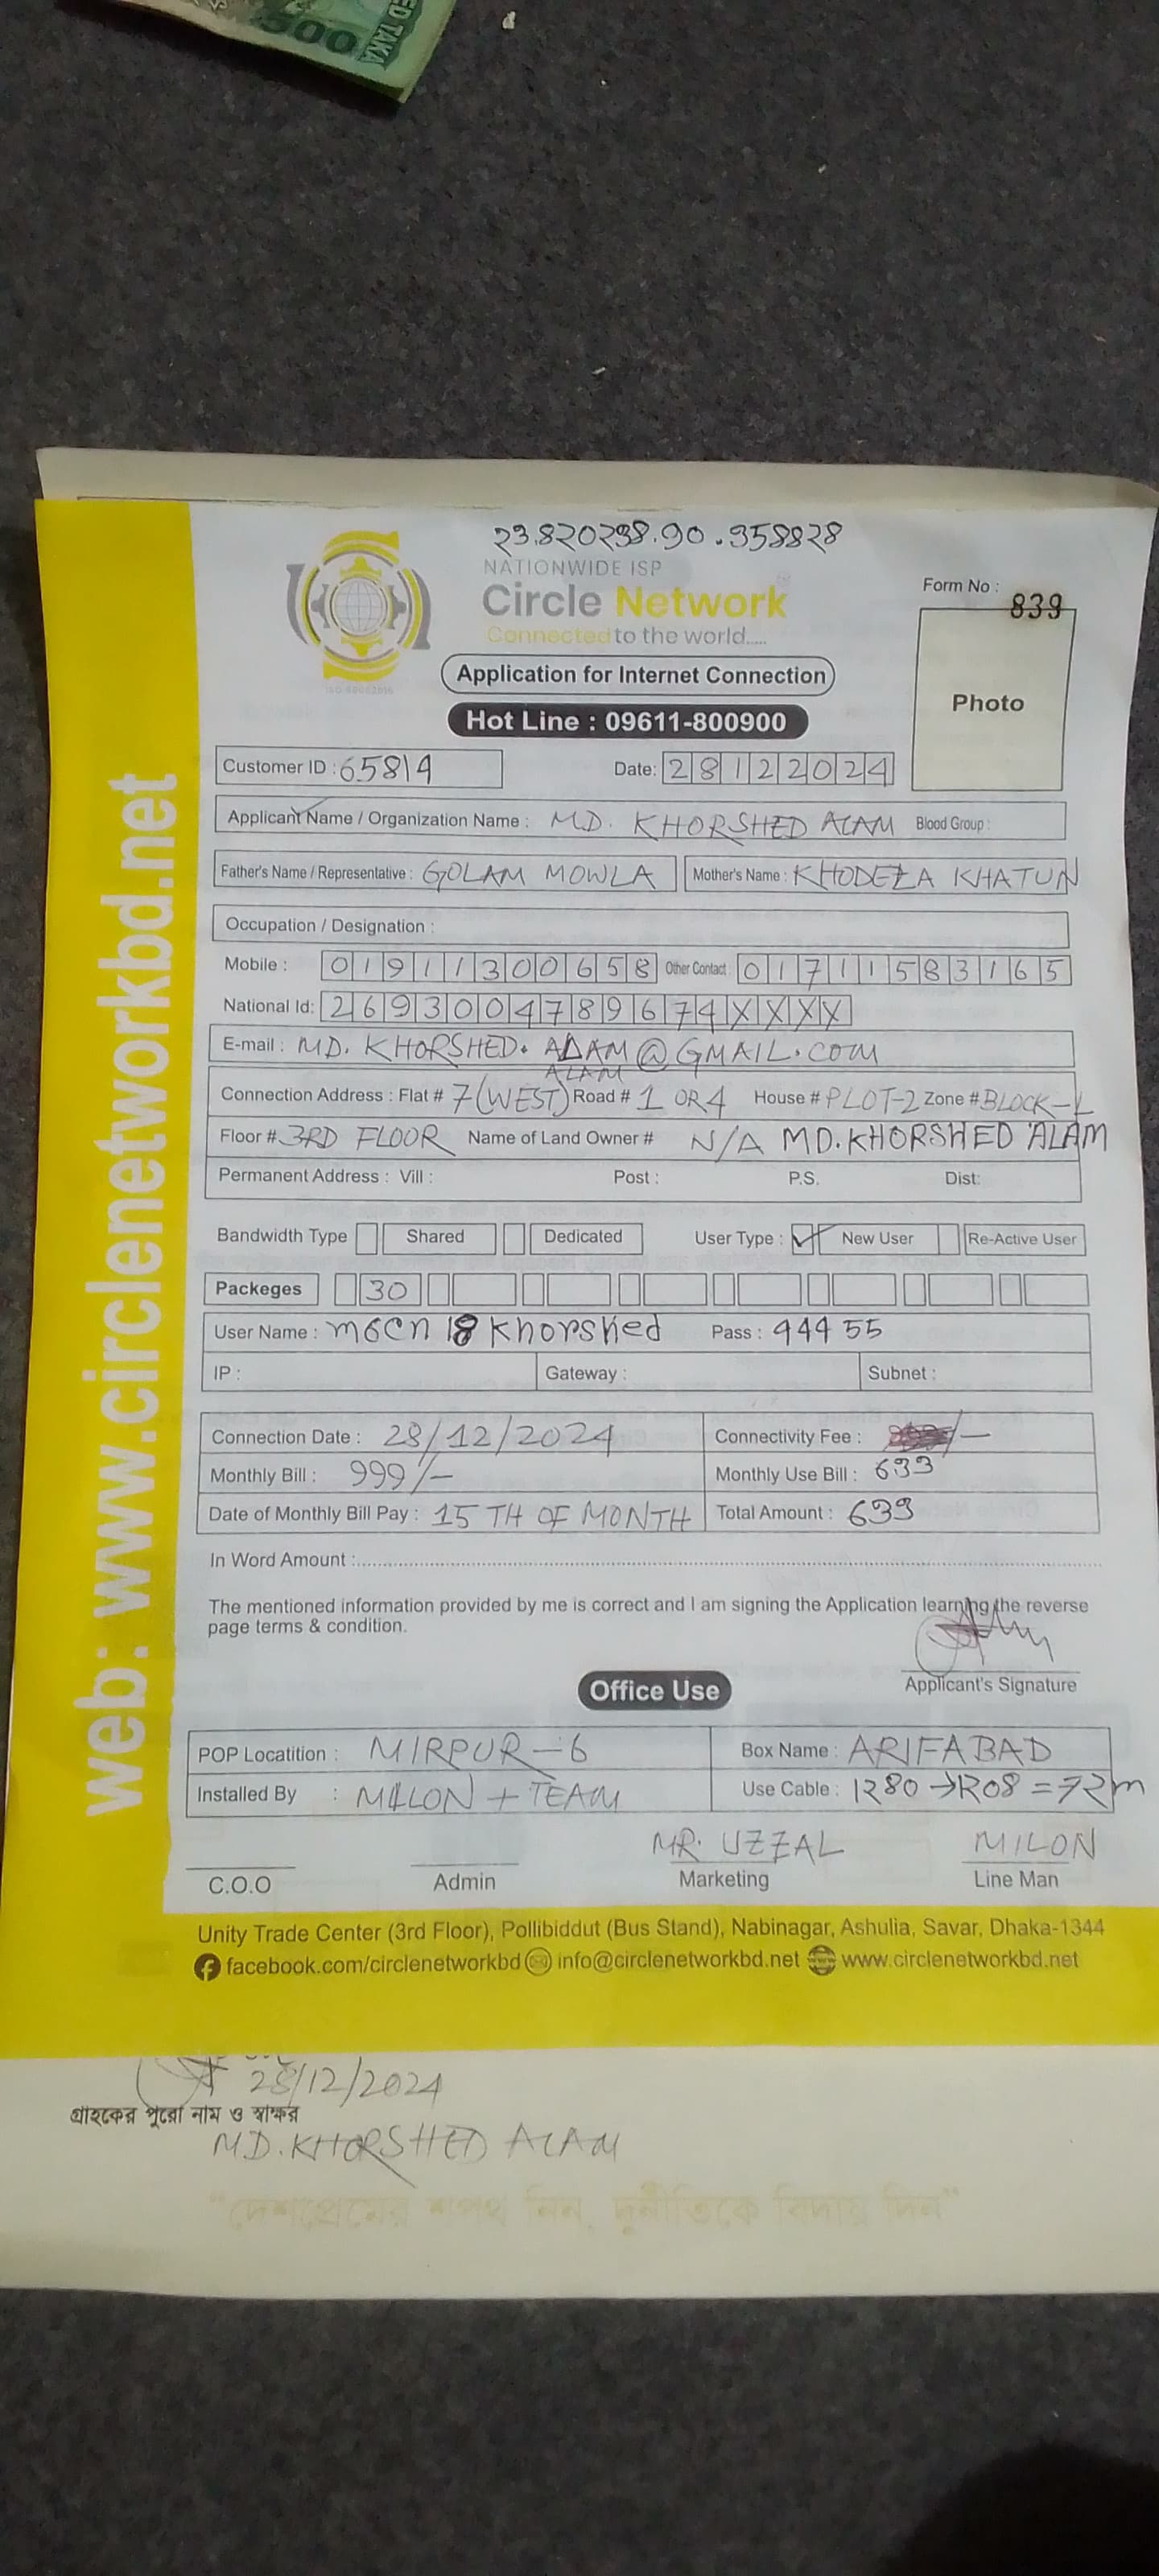 500
ED TAKA
23.820238.90.358828
NATIONWIDE ISP
Circle Network
Connected to the world.....
Form No : 839
Application for Internet Connection
Photo
Hot Line : 09611-800900
Customer ID : 65814 Date: 28122024
Applicant Name / Organization Name : MD. KHORSHED ALAM Blood Group :
Father's Name / Representative : GOLAM MOWLA Mother's Name : KHODEZA KHATUN
Occupation / Designation :
Mobile : 01911300658 Other Contact 01711583165
National Id: 2693004789674XXXX
E-mail : MD. KHORSHED. ALAM@GMAIL.COM
ALAM
Connection Address : Flat # 7(WEST) Road # 1 OR4 House # PLOT-2 Zone # BLOCK-L
Floor # 3RD FLOOR Name of Land Owner # N/A MD.KHORSHED ALAM
Permanent Address : Vill : Post : P.S. Dist:
Bandwidth Type Shared Dedicated User Type : New User Re-Active User
Packeges 30
User Name : m6cn 18 Khorshed Pass : 94455
IP : Gateway : Subnet :
Connection Date : 28/12/2024 Connectivity Fee : /—
Monthly Bill : 999/— Monthly Use Bill : 633
Date of Monthly Bill Pay : 15 TH OF MONTH Total Amount : 633
In Word Amount :
The mentioned information provided by me is correct and I am signing the Application learning the reverse
page terms & condition.
Applicant's Signature
Office Use
POP Locatition : MIRPUR-6 Box Name : ARIFABAD
Installed By : MILON + TEAM Use Cable : 1280→1208=72m
MR. UZZAL MILON
C.O.O Admin Marketing Line Man
Unity Trade Center (3rd Floor), Pollibiddut (Bus Stand), Nabinagar, Ashulia, Savar, Dhaka-1344
facebook.com/circlenetworkbd info@circlenetworkbd.net www.circlenetworkbd.net
web: www.circlenetworkbd.net
28/12/2024
গ্রাহকের পুরো নাম ও স্বাক্ষর
MD.KHORSHED ALAM
"দেশপ্রেমের শপথ নিন, দুর্নীতিকে বিদায় দিন"